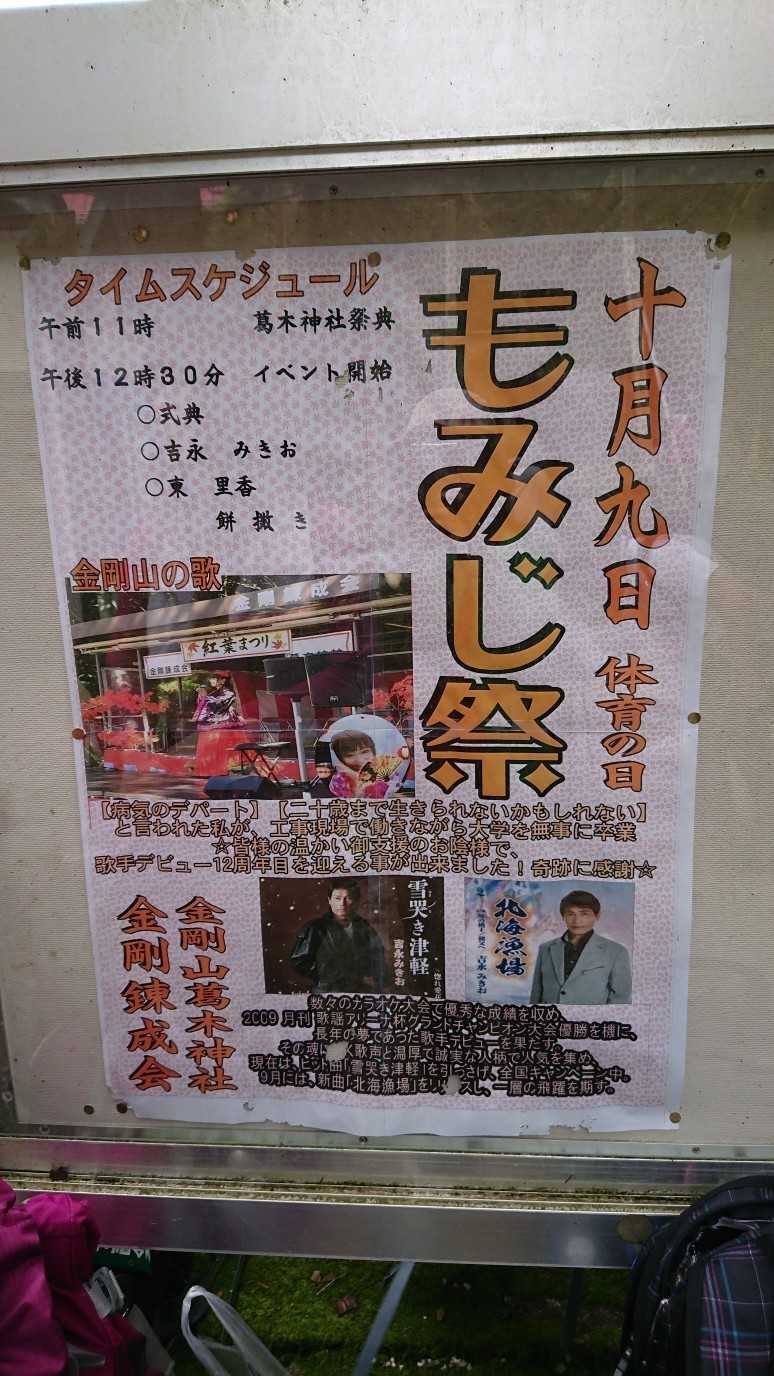 十月九日 体育の日
もみじ祭
タイムスケジュール
午前11時 葛木神社祭典
午後12時30分 イベント開始
○式典
○吉永 みきお
○東 里香
餅撒き
金剛山の歌
金剛錬成会
紅葉まつり
金剛錬成会
【病気のデパート】【二十歳まで生きられないかもしれない】
と言われた私が、工事現場で働きながら大学を無事に卒業
☆皆様の温かい御支援のお陰様で、
歌手デビュー12周年目を迎える事が出来ました！奇跡に感謝☆
雪哭き津軽
吉永みきお
北海漁場
吉永みきお
数々のカラオケ大会で優秀な成績を収め、
2009 月刊 歌謡アリーナ杯グランドチャンピオン大会優勝を機に、
長年の夢であった歌手デビューを果たす。
その魂 く歌声と温厚で誠実な人柄で人気を集め、
現在は、ヒット曲「雪哭き津軽」を引っさげ、全国キャンペーン中。
9月には、新曲「北海漁場」を スし、一層の飛躍を期す。
金剛山葛木神社
金剛錬成会